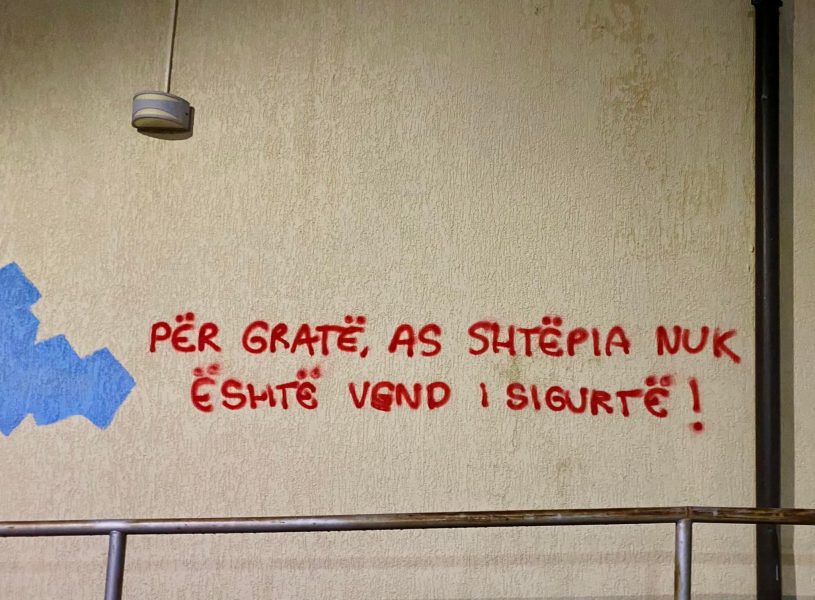 PËR GRATË, AS SHTËPIA NUK
ËSHTË VEND I SIGURTË!